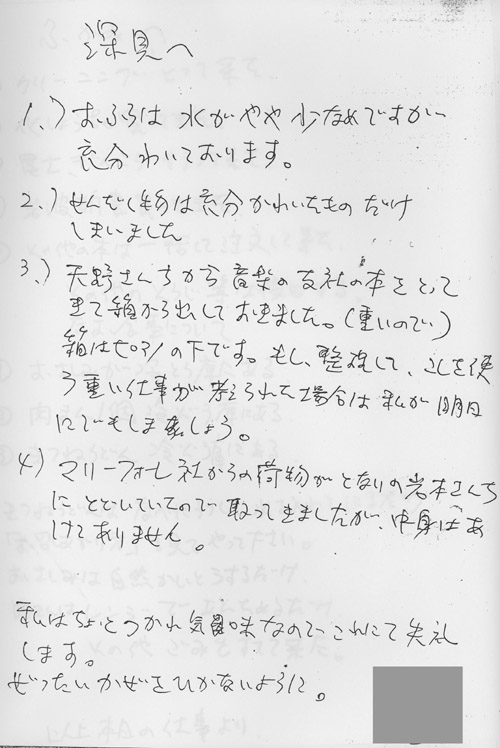 深見へ
1.) おふろは 水がやや 少なめですが
充分 わいております。
2.) せんたく物は充分 かわいたもの だけ
しまいました
3.) 天野さんちから 音楽の友社の本をとって
きて箱から出しておきました。(重いので)
箱はピアノの下です。もし、整理して、こしを使
う重い仕事が考えられた場合は 私が 明日
にでもしましょう。
4) マリーフォーレ社からの荷物がとなりの岩本さんち
にとどいていたので 取ってきましたが、中身はあ
けてありません。
私はちょっとつかれ気味なので これにて失礼
します。
ぜったいかぜをひかないように。